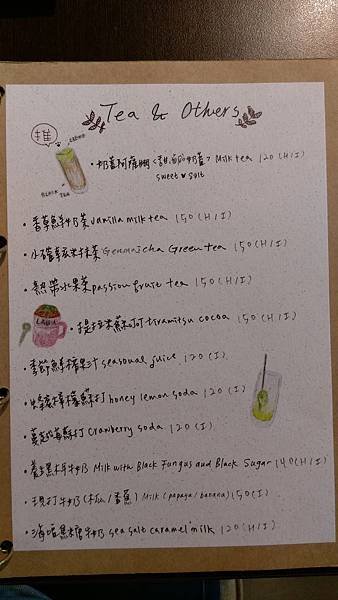 Tea & Others
推
奶蓋阿薩姆<甜/鹹奶蓋> Milk tea 120 (H/I)
sweet ♥ salt
BLACK TEA
・香草鮮奶茶 vanilla milk tea 150 (H/I)
・小雀幸玄米抹茶 Genmaicha Green tea 150 (H/I)
・熱帶水果茶 passion fruit tea 150 (H/I)
・提拉米蘇可可 tiramitsu cocoa 150 (H/I)
・季節鮮榨果汁 seasoual juice 120 (I)
・蜂蜜檸檬蘇打 honey lemon soda 120 (I)
・蔓越莓蘇打 Cranberry soda 120 (I)
・養生黑木耳牛奶 Milk with Black Fungus and Black Sugar 140 (H/I)
・現打牛奶 (木瓜/香蕉) Milk (papaya/banana) 150 (I)
・海鹽焦糖牛奶 sea salt caramel milk 120 (H/I)